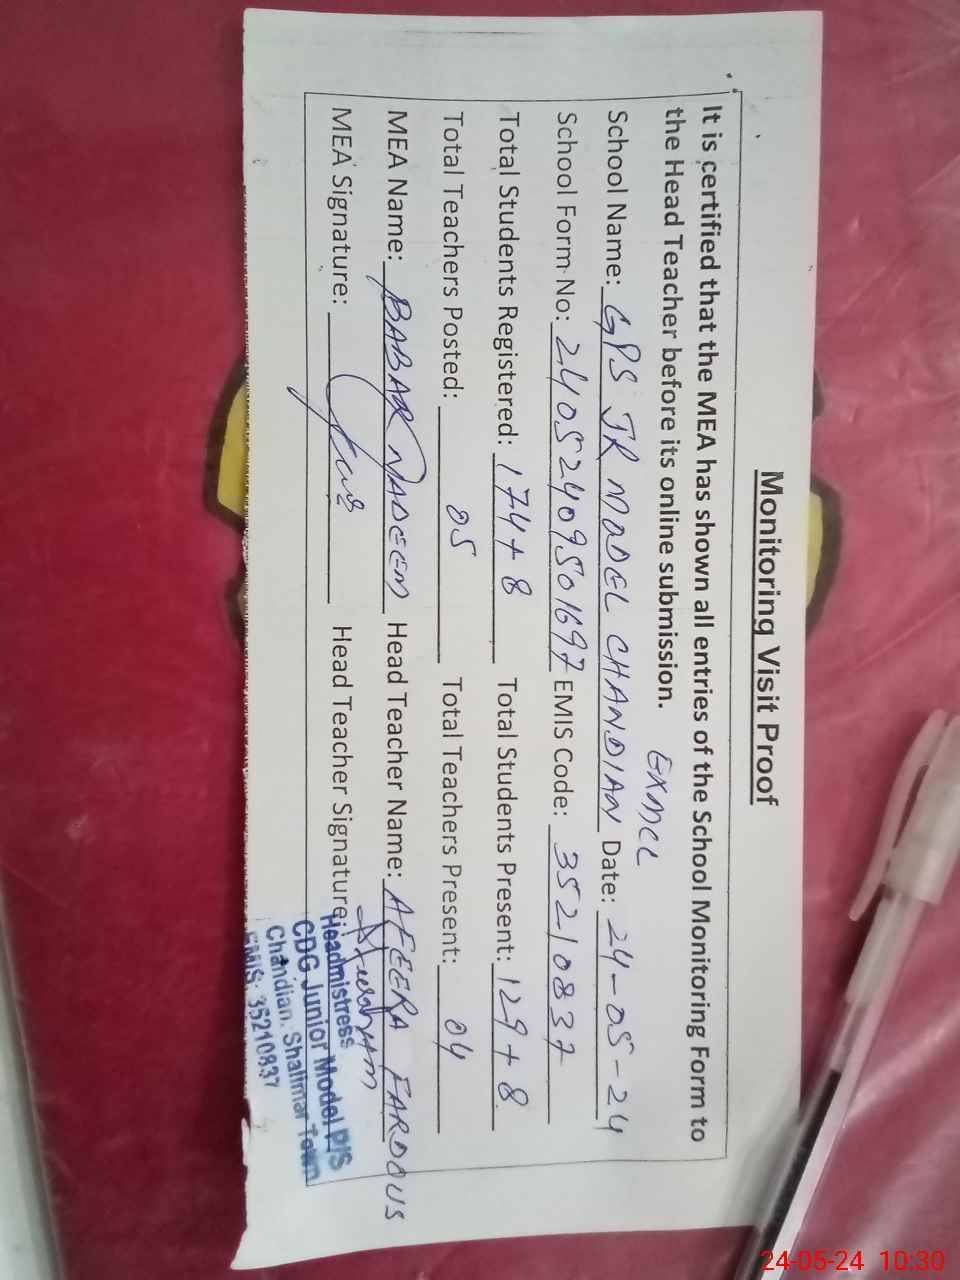 Monitoring Visit Proof
It is certified that the MEA has shown all entries of the School Monitoring Form to
the Head Teacher before its online submission.
School Name: GPS JR MODEL CHANDIAN Date: 24-05-24
School Form No: 24052409501697 EMIS Code: 35210837
Total Students Registered: 174+8 Total Students Present: 129+8
Total Teachers Posted: 05 Total Teachers Present: 04
MEA Name: BABAR NADEEM Head Teacher Name: AFEERA FARDOUS
MEA Signature: Head Teacher Signature:
Headmistress
CDG Junior Model P/S
Chandian. Shalimar Town
EMIS: 35210837
24-05-24 10:30